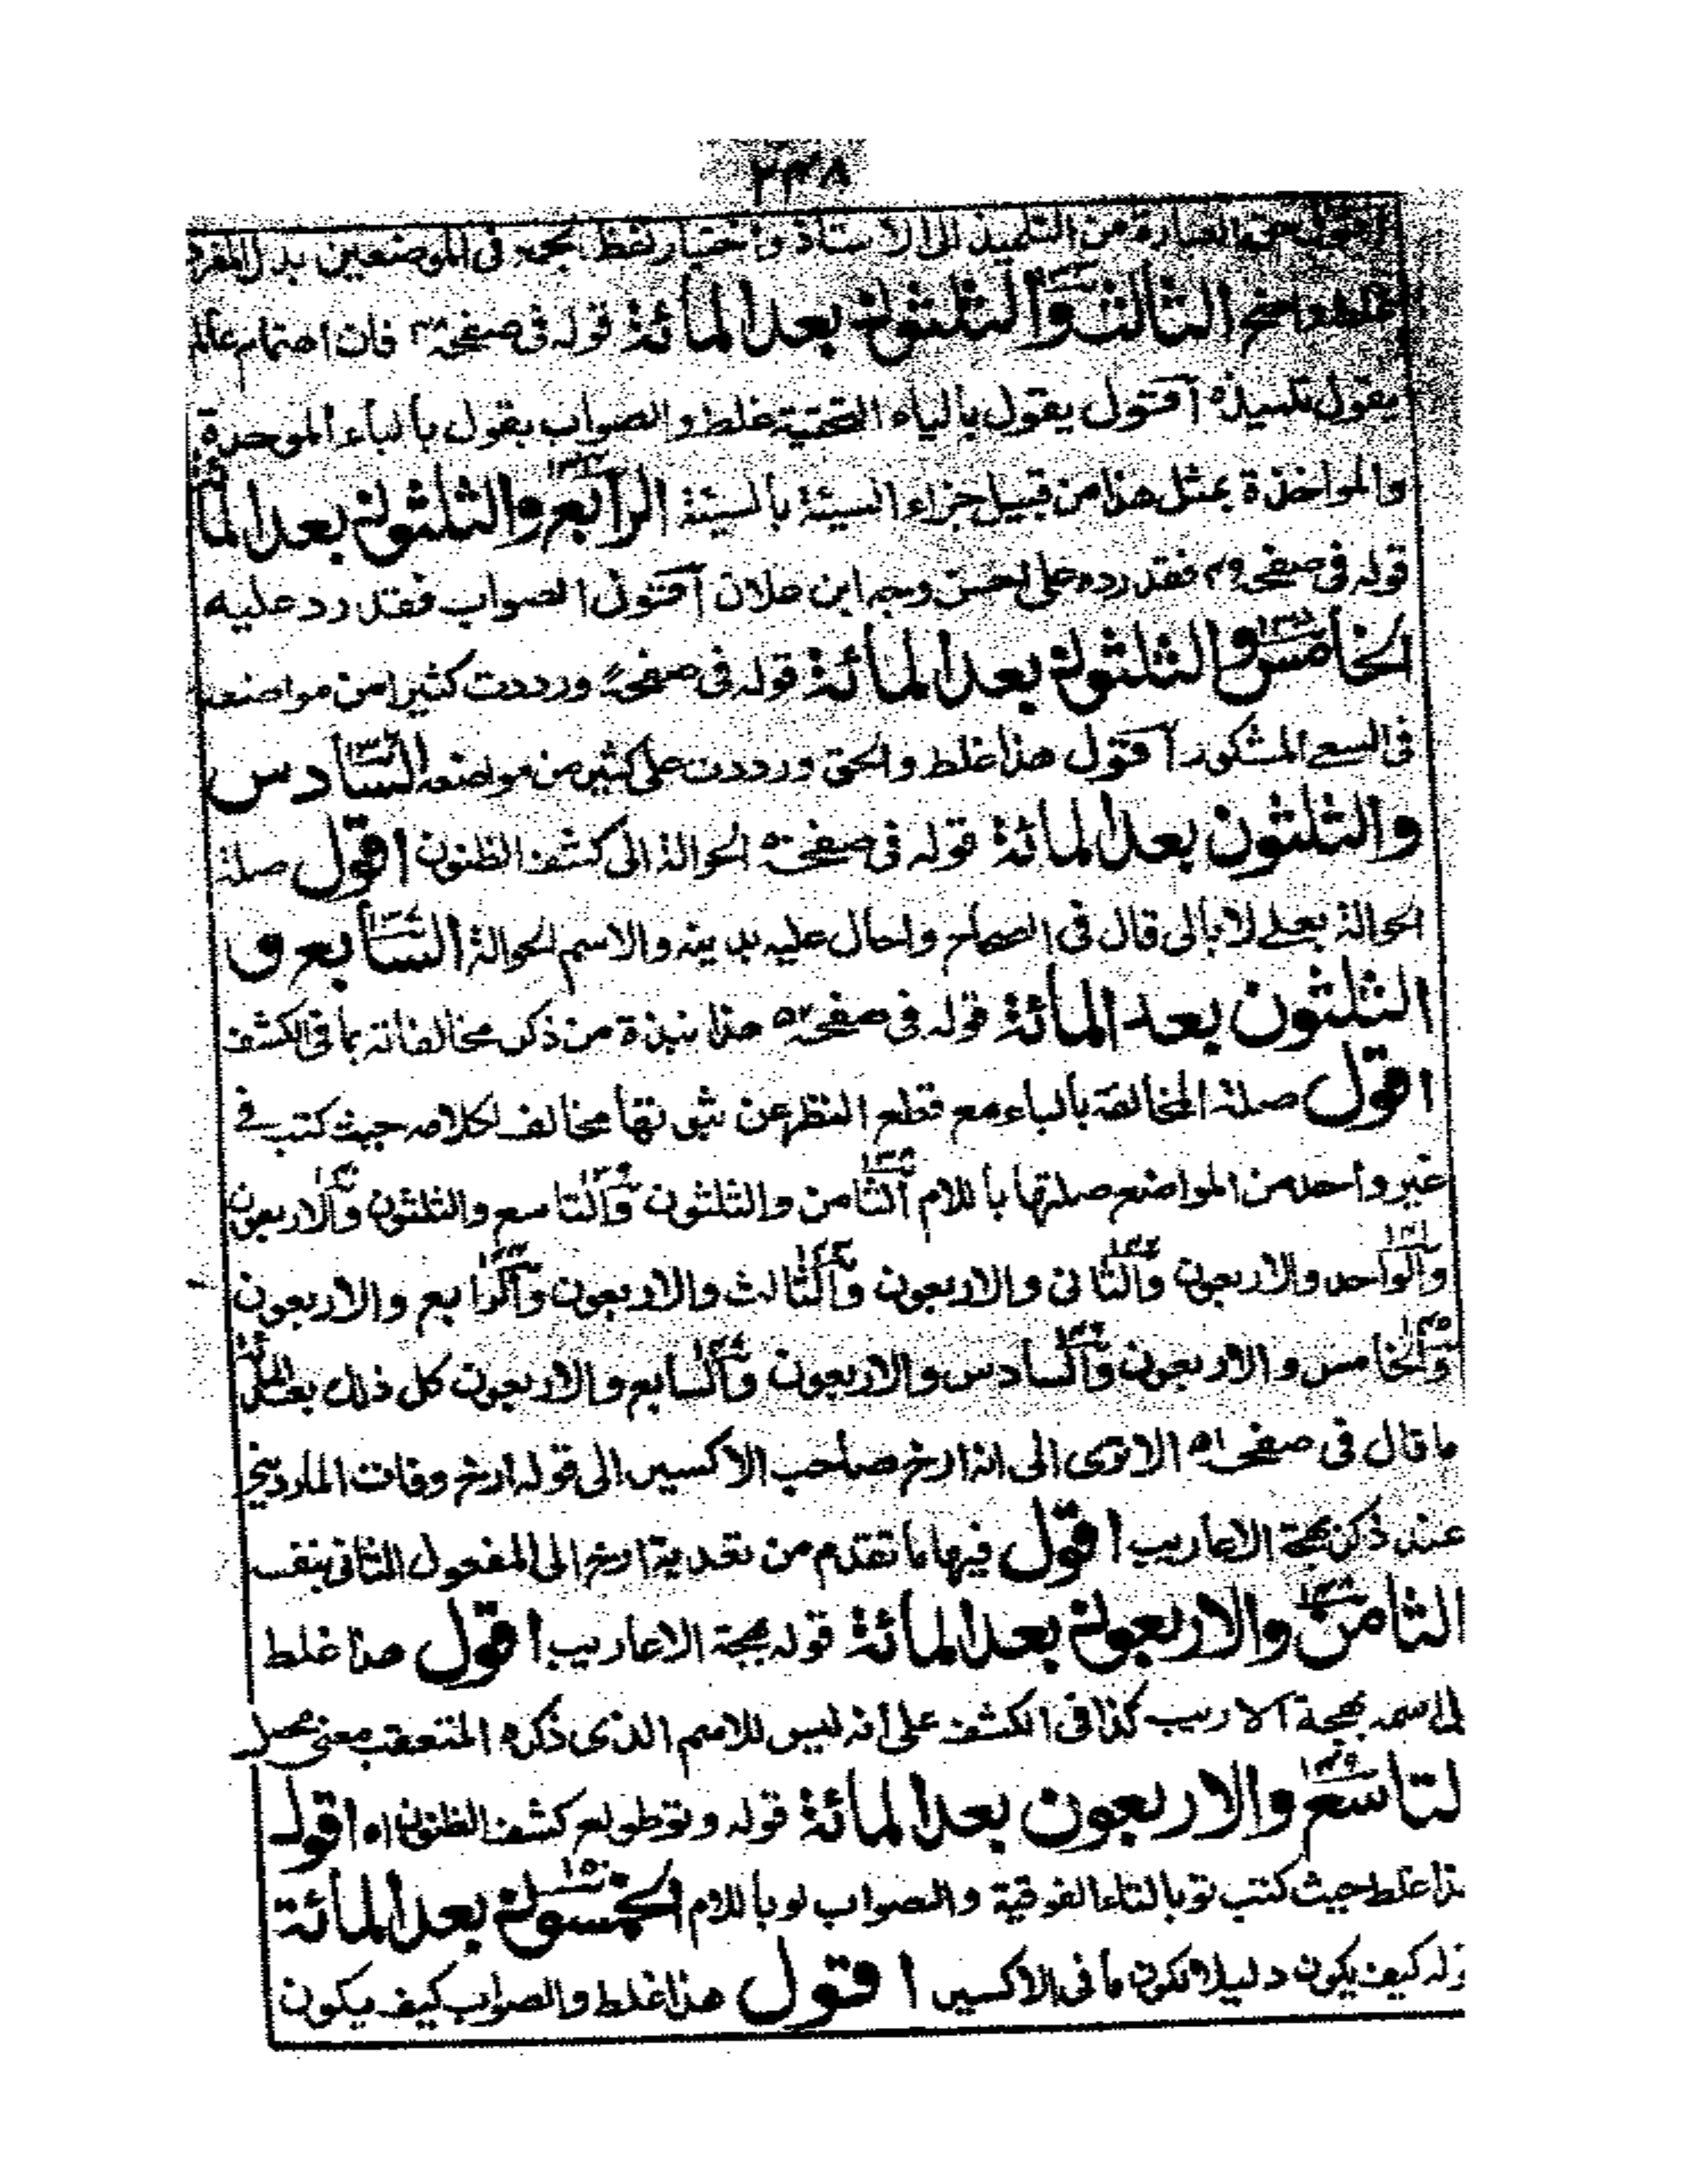 ٢٣٨
العبارة من التلميذ الى الاستاذ واختيار لفظ الجمع فى الموضعين بدل المفرد
غلط واضح الثالث والثلثون بعد المائة قوله فى صفحة فان اهتمام عالم
يقول تلميذه اقول يقول بالياء التحتية غلط والصواب بقول بالباء الموحدة
والمواخذة بمثل هذا من قبيل جزاء السيئة بالسيئة الرابع والثلثون بعد المائة
قوله فى صفحه ٤٩ فقد رده على احسن وجه ابن علان اقول الصواب فقد رد عليه
الخامس والثلثون بعد المائة قوله فى صفحة ورددت كثيرا من مواضعه
فى السعے المشكور اقول هذا غلط والحق ورددت على كثير من مواضعه السادس
والثلثون بعد المائة قوله فى صفحة الحوالة الى كشف الظنون اقول صلة
الحوالة بعلے لا بالى قال فى الصحاح واحال عليه بدينه والاسم الحوالة السابع و
الثلثون بعد المائة قوله فى صفحة ٥٢ هذا نبذة من ذكر مخالفاته بما فى الكشف
اقول صلة المخالفة بالباء مع قطع النظر عن ثبوتها مخالف لكلامه حيث كتب فے
غير واحد من المواضع صلتها باللام الثامن والثلثون والتاسع والثلثون والاربعون
والواحد والاربعون والثانى والاربعون والثالث والاربعون والرابع والاربعون
والخامس والاربعون والسادس والاربعون والسابع والاربعون كل ذلك بعد المائة
ما قال فى صفحه ٥١ الا ترى الى انه ارخ صاحب الاكسير الى قوله ارخ وفات الماردينى
عند ذكر بهجة الاعاريب اقول فيها ما تقدم من تعدية ارخ الى المفعول الثانى بنفسه
الثامن والاربعون بعد المائة قوله بهجة الاعاريب اقول هذا غلط
اسمه بهجة الاريب كذا فى الكشف على أنه ليس للاسم الذى ذكره المتعقب معنى محصل
لتاسع والاربعون بعد المائة قوله وتوطولع كشف الظنون اه اقول
ذا غلط حيث كتب تو بالتاء الفوقية والصواب لو باللام الخمسون بعد المائة
وله كيف يكون دليلا لكون ما فى الاكسير اقول هذا غلط والصواب كيف يكون